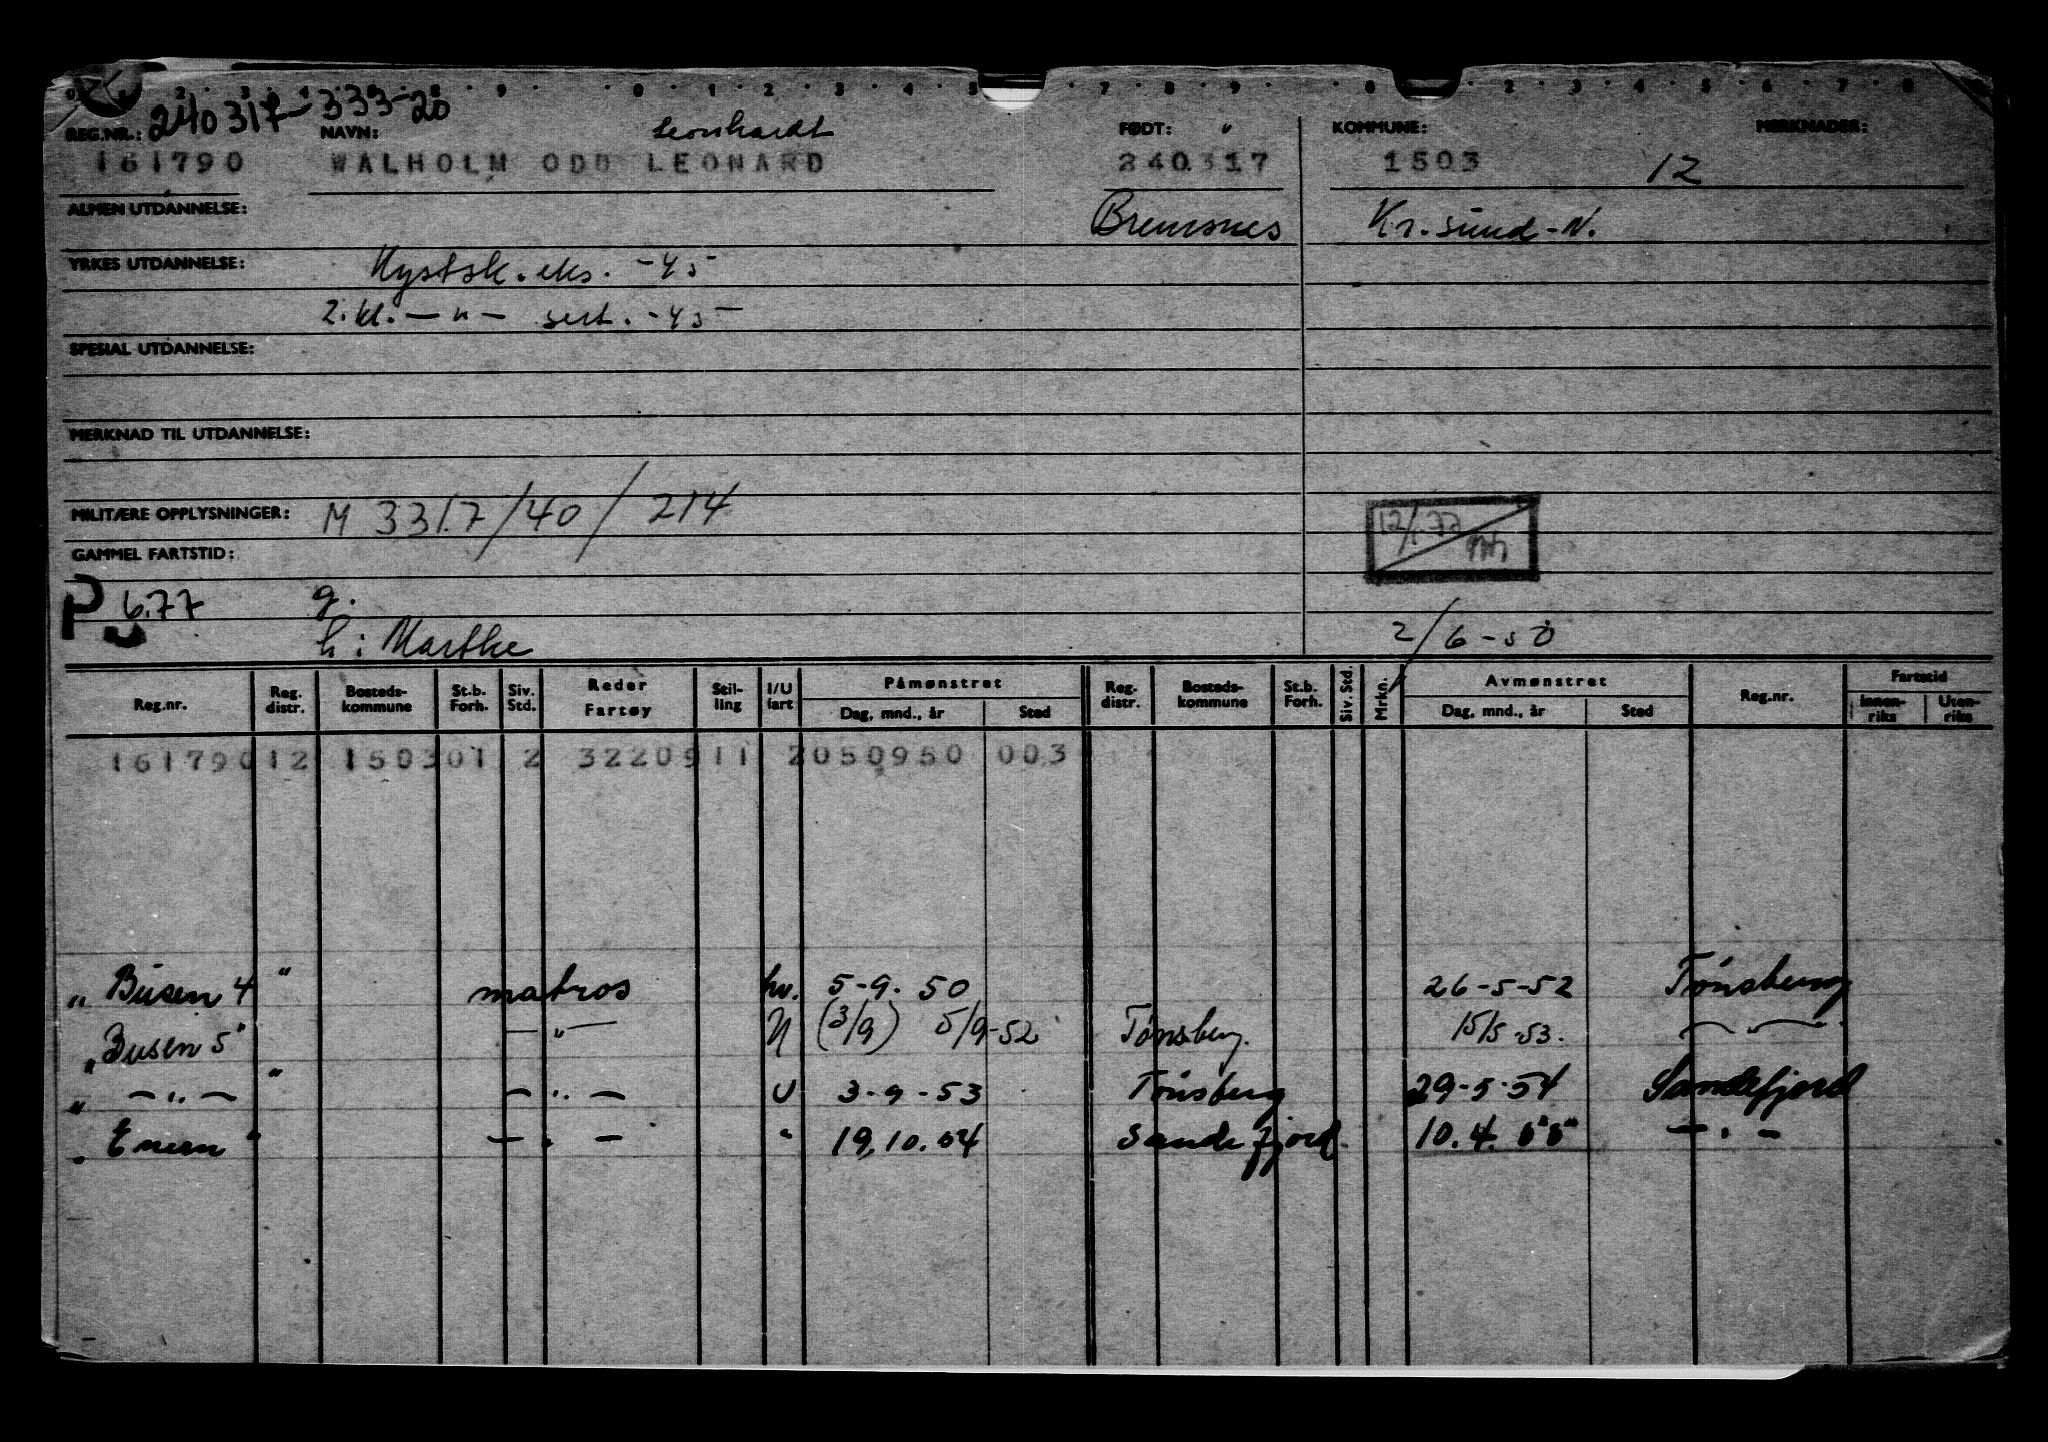 240317-333-20
REG.NR.: NAVN: Leonhardt FØDT: KOMMUNE: MERKNADER:
161790 WALHOLM ODD LEONARD 240317 1503 12
ALMEN UTDANNELSE: Bremsnes Kr.sund-N.
YRKES UTDANNELSE: Kystsk.eks. -45-
2.kl. — " — sert. -45-
SPESIAL UTDANNELSE:
MERKNAD TIL UTDANNELSE:
MILITÆRE OPPLYSNINGER: M 3317/40/214 12/1.77
GAMMEL FARTSTID:
P 6.77 g.
h: Marthe 2/6-50
Reg.nr. Reg. distr. Bosteds-kommune St.b. Forh. Siv. Std. Reder Fartøy Stil-ling I/U fart Påmønstret Dag, mnd., år Sted Reg. distr. Bosteds-kommune St.b. Forh. Siv. Std. Mrkn. Avmønstret Dag, mnd., år Sted Reg.nr. Fartstid Innen-riks Uten-riks
161790 12 1503 01 2 3220911 2050950 003
" Busen 4 " matros hv. 5-9. 50 26-5-52 Tønsberg
" Busen 5" — " — U (3/9) 5/9-52 Tønsberg. 15/5-53. — " —
" — " — " — " — U 3-9-53 Tønsberg 29-5-54 Sandefjord
" Enern " — " — " 19.10.54 Sandefjord. 10.4. 55 — " —